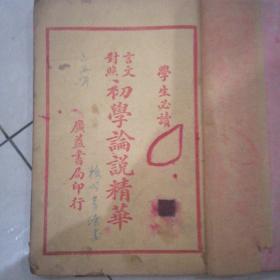 學生必讀
言文對照
初學論說精華
廣益書局印行